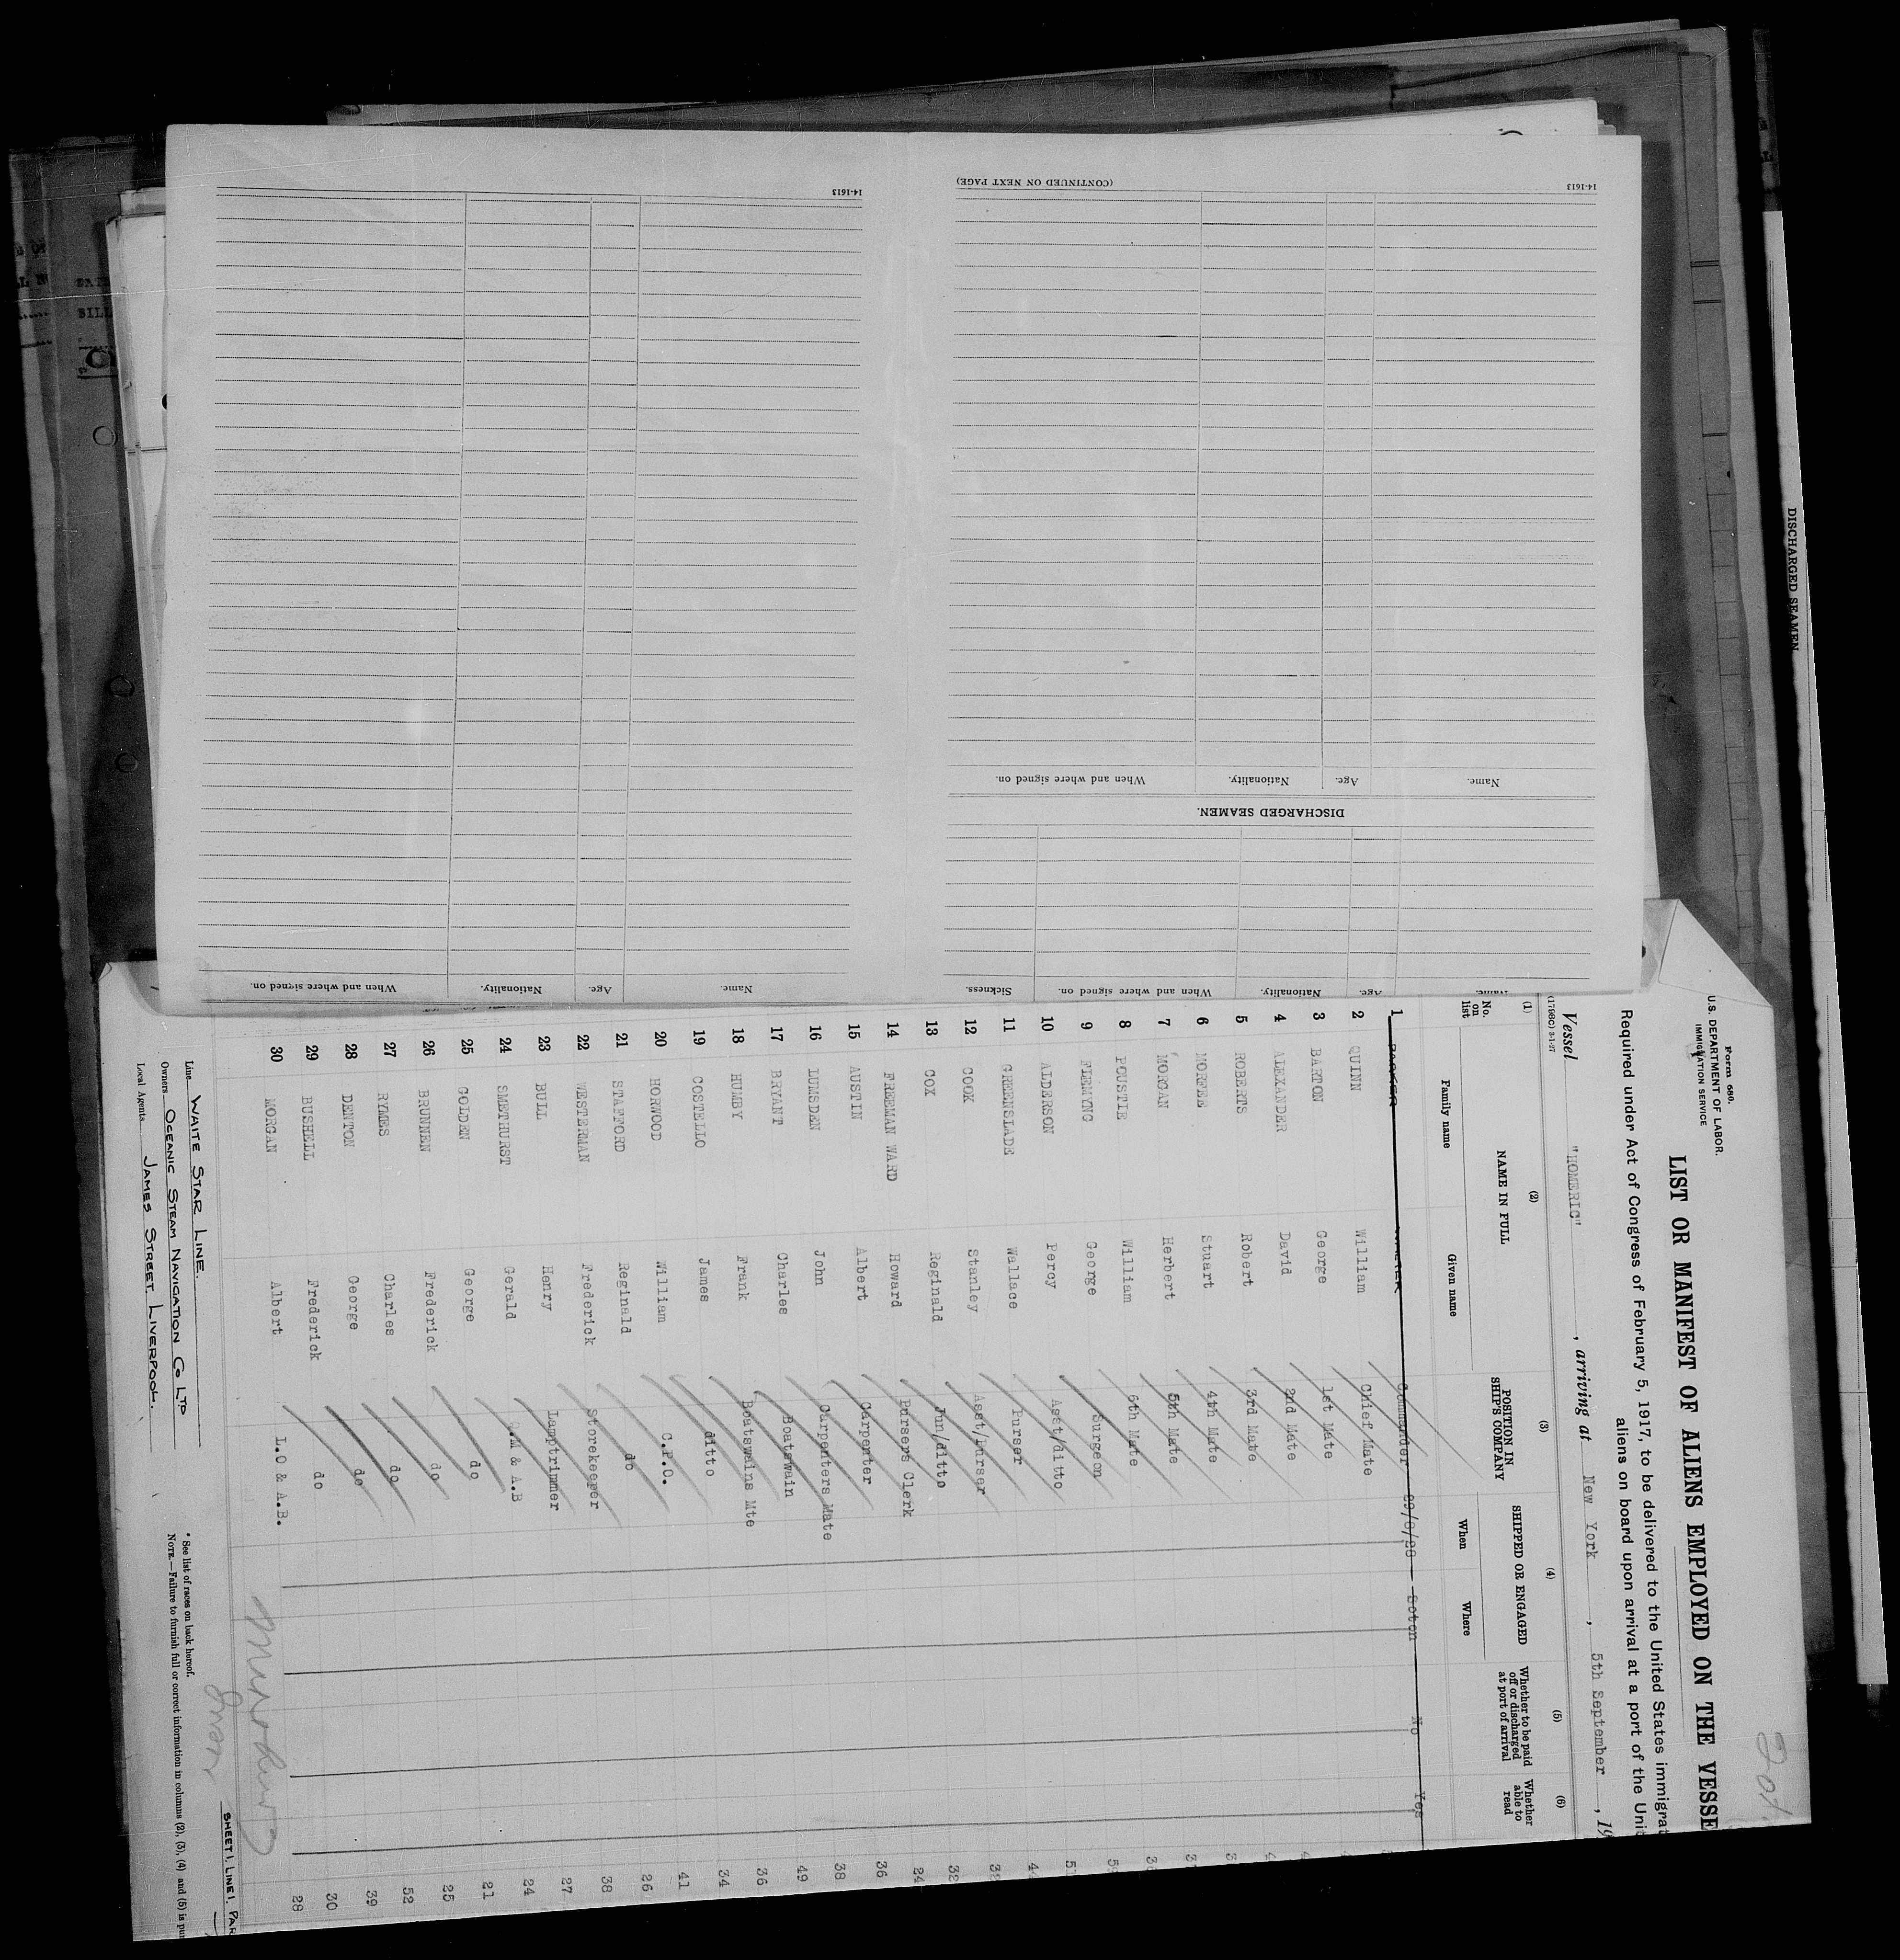 14-1613
(CONTINUED ON NEXT PAGE)
14-1613
Name.
Age.
Nationality.
When and where signed on.
DISCHARGED SEAMEN.
Name.
Age.
Nationality.
When and where signed on.
Sickness.
Name.
Age.
Nationality.
When and where signed on.
DISCHARGED SEAMEN
Form 680.
U.S. DEPARTMENT OF LABOR.
IMMIGRATION SERVICE
(1798C) 3-1-27
LIST OR MANIFEST OF ALIENS EMPLOYED ON THE VESSE
Required under Act of Congress of February 5, 1917, to be delivered to the United States immigrat
aliens on board upon arrival at a port of the Unit
Vessel "HOMERIC", arriving at New York, 5th September, 19
(1) (2) (3) (4) (5) (6)
No. on list
NAME IN FULL
Family name Given name
POSITION IN SHIP'S COMPANY
SHIPPED OR ENGAGED
When Where
Whether to be paid off or discharged at port of arrival
Whether able to read
1 Commander Soton No Yes
2 QUINN William Chief Mate
3 BARTON George 1st Mate
4 ALEXANDER David 2nd Mate
5 ROBERTS Robert 3rd Mate
6 MORFEE Stuart 4th Mate
7 MORGAN Herbert 5th Mate
8 POUSTIE William 6th Mate
9 FLEMYNG George Surgeon
10 ALDERSON Percy Asst/ditto
11 GREENSLADE Wallace Purser
12 COOK Stanley Asst/Purser 32
13 COX Reginald Jun/ditto 24
14 FREEMAN WARD Howard Pursers Clerk 36
15 AUSTIN Albert Carpenter 38
16 LUMSDEN John Carpenters Mate 49
17 BRYANT Charles Boatswain 36
18 HUMBY Frank Boatswains Mte 34
19 COSTELLO James ditto 41
20 HORWOOD William C.P.O. 26
21 STAFFORD Reginald do 38
22 WESTERMAN Frederick Storekeeper 27
23 BULL Henry Lamptrimmer 24
24 SMETHURST Gerald Q.M & A.B 21
25 GOLDEN George do 25
26 BRUNNEN Frederick do 52
27 RYMES Charles do 39
28 DENTON George do 30
29 BUSHELL Frederick do 28
30 MORGAN Albert L.O & A.B.
Line WHITE STAR LINE.
Owners OCEANIC STEAM NAVIGATION Co LTD
Local Agents JAMES STREET, LIVERPOOL.
* See list of races on back hereof.
NOTE.—Failure to furnish full or correct information in columns (2), (3), (4) and (5) is pu
SHEET 1, LINE 1, PAR